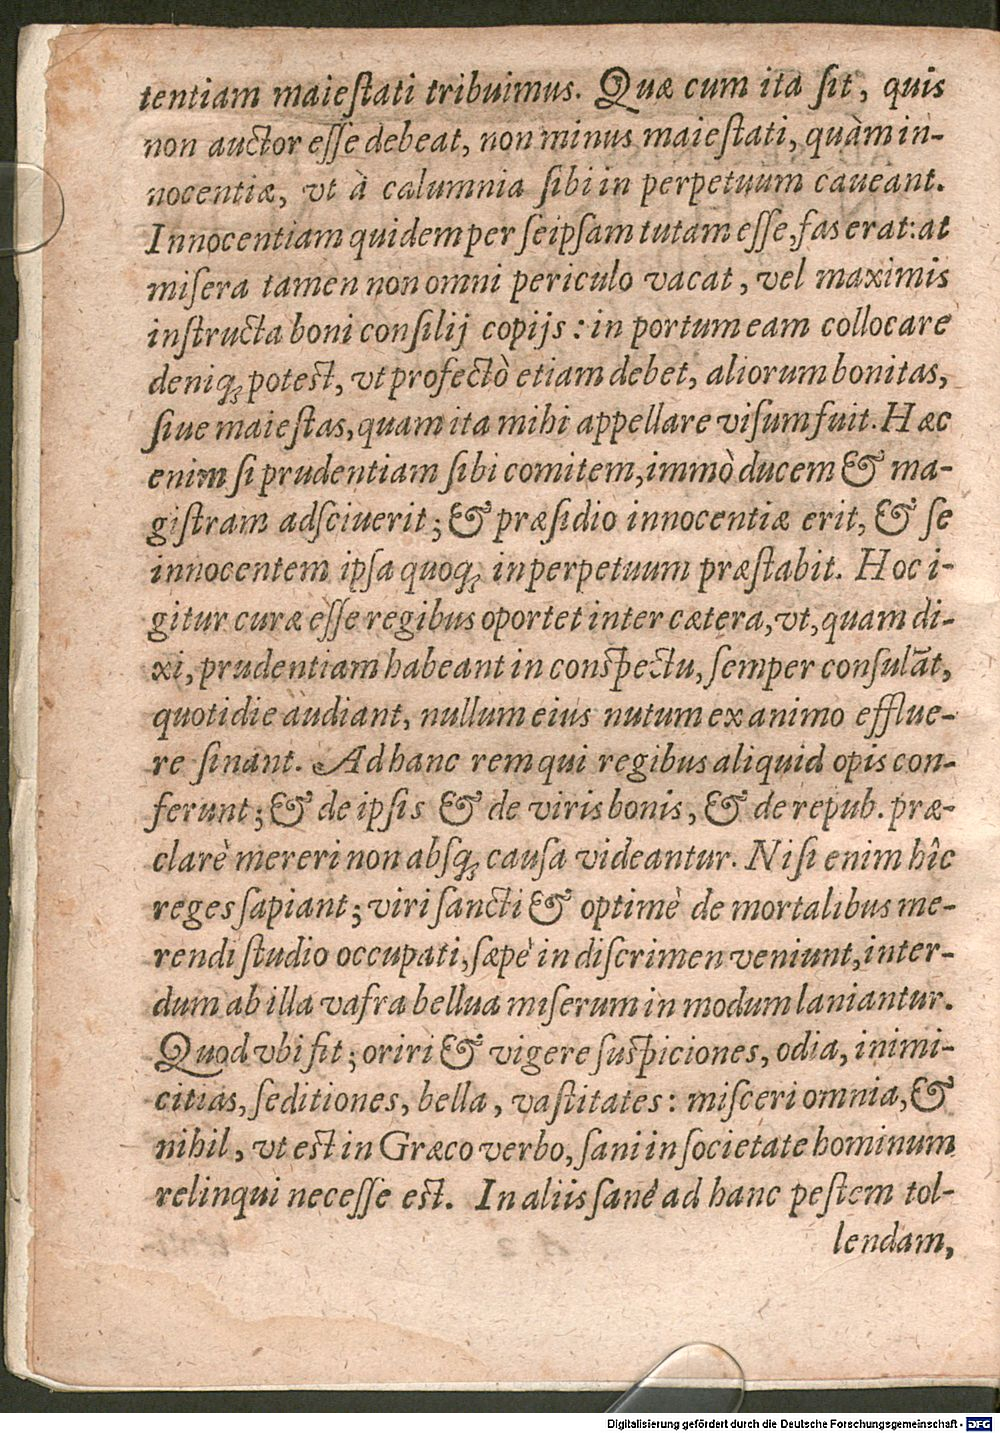 tentiam maieſtati tribuimus. Quæ cum ita ſit, quis
non auctor eſſe debeat, non minus maieſtati, quàm in-
nocentiæ, vt à calumnia ſibi in perpetuum caueant.
Innocentiam quidem per ſeipſam tutam eſſe, fas erat: at
miſera tamen non omni periculo vacat, vel maximis
inſtructa boni conſilij copijs: in portum eam collocare
deniq; poteſt, vt profectò etiam debet, aliorum bonitas,
ſiue maieſtas, quam ita mihi appellare viſum fuit. Hæc
enim ſi prudentiam ſibi comitem, immò ducem & ma-
giſtram adſciuerit; & præſidio innocentiæ erit, & ſe
innocentem ipſa quoq; in perpetuum præſtabit. Hoc i-
gitur curæ eſſe regibus oportet inter cætera, vt, quam di-
xi, prudentiam habeant in conſpectu, ſemper conſulãt,
quotidie audiant, nullum eius nutum ex animo efflue-
re ſinant. Ad hanc rem qui regibus aliquid opis con-
ferunt; & de ipſis & de viris bonis, & de repub. præ-
clarè mereri non abſq; cauſa videantur. Niſi enim hîc
reges ſapiant; viri ſancti & optimè de mortalibus me-
rendi ſtudio occupati, ſæpè in diſcrimen veniunt, inter-
dum ab illa vafra bellua miſerum in modum laniantur.
Quod vbi fit; oriri & vigere ſuſpiciones, odia, inimi-
citias, ſeditiones, bella, vaſtitates: miſceri omnia, &
nihil, vt eſt in Græco verbo, ſani in ſocietate hominum
relinqui neceſſe eſt. In aliis ſanè ad hanc peſtem tol-
lendam,
Digitalisierung gefördert durch die Deutsche Forschungsgemeinschaft - DFG